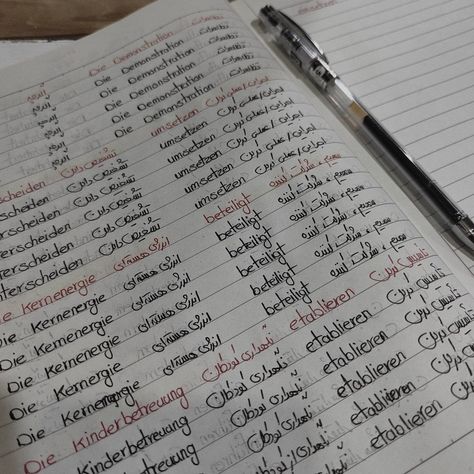 Die Demonstration تظاهرات
Die Demonstration تظاهرات
Die Demonstration تظاهرات
Die Demonstration تظاهرات
Die Demonstration تظاهرات
umsetzen عملی کردن
umsetzen عملی کردن
umsetzen عملی کردن
umsetzen عملی کردن
umsetzen عملی کردن
beteiligt سهیم، شرکت کننده
beteiligt سهیم، شرکت کننده
beteiligt سهیم، شرکت کننده
beteiligt سهیم، شرکت کننده
beteiligt سهیم، شرکت کننده
etablieren تاسیس کردن
etablieren تاسیس کردن
etablieren تاسیس کردن
etablieren تاسیس کردن
etablieren تاسیس کردن
scheiden تشخیص دادن
erscheiden تشخیص دادن
terscheiden تشخیص دادن
terscheiden تشخیص دادن
nterscheiden تشخیص دادن
Die Kernenergie انرژی هسته‌ای
Die Kernenergie انرژی هسته‌ای
Die Kernenergie انرژی هسته‌ای
Die Kernenergie انرژی هسته‌ای
Die Kernenergie انرژی هسته‌ای
Die Kinderbetreuung نگهداری کودکان
Die Kinderbetreuung نگهداری کودکان
Die Kinderbetreuung نگهداری کودکان